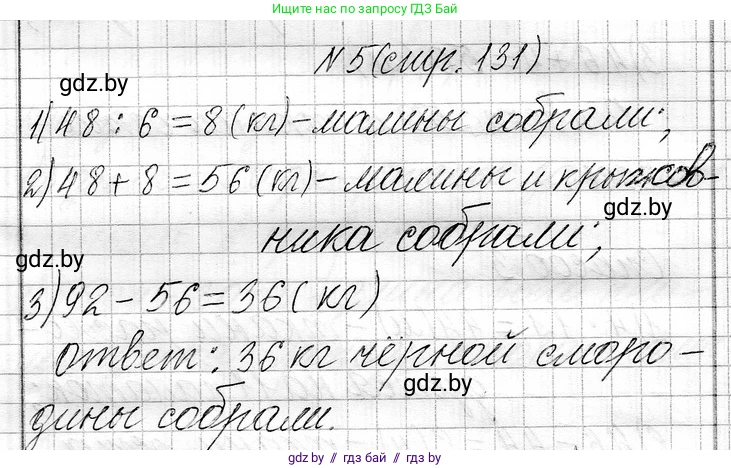 Ищите нас в интернете по запросу ГДЗ Бай
№ 5 (стр. 131)
gdz.by
1) 48 : 6 = 8 (кг) - малины собрали;
2) 48 + 8 = 56 (кг) - малины и крыжов-
gdz.by
ника собрали;
gdz.by
3) 92 - 56 = 36 (кг)
ответ: 36 кг чёрной сморо-
gdz.by
дины собрали.
gdz.by // гдз бай // гдз by